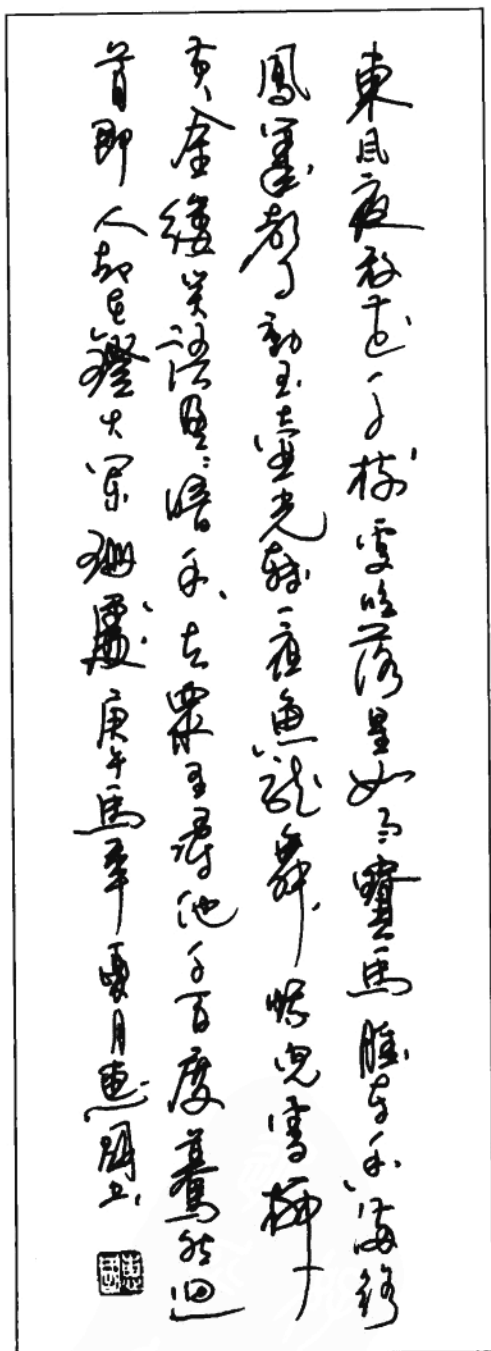 東風夜放花千樹更吹落星如雨寶馬雕車香滿路
鳳簫聲動玉壺光轉一夜魚龍舞蛾兒雪柳
黃金縷笑語盈盈暗香去眾里尋他千百度驀然迴
首那人却在燈火闌珊處庚午馬年夏月